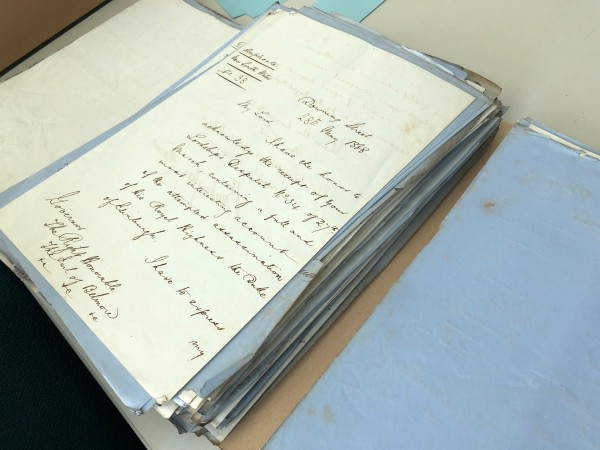 Duplicate
New South Wales
No 38
Downing Street
28th May 1868
My Lord,
I have the honor to
acknowledge the receipt of Your
Lordship's Despatch No 34 of 27th
March containing a full and
most interesting account
of the attempted assassination
of His Royal Highness the Duke
of Edinburgh.
I have to express
my
Governor
The Right Honorable
The Earl of Belmore
&c &c &c